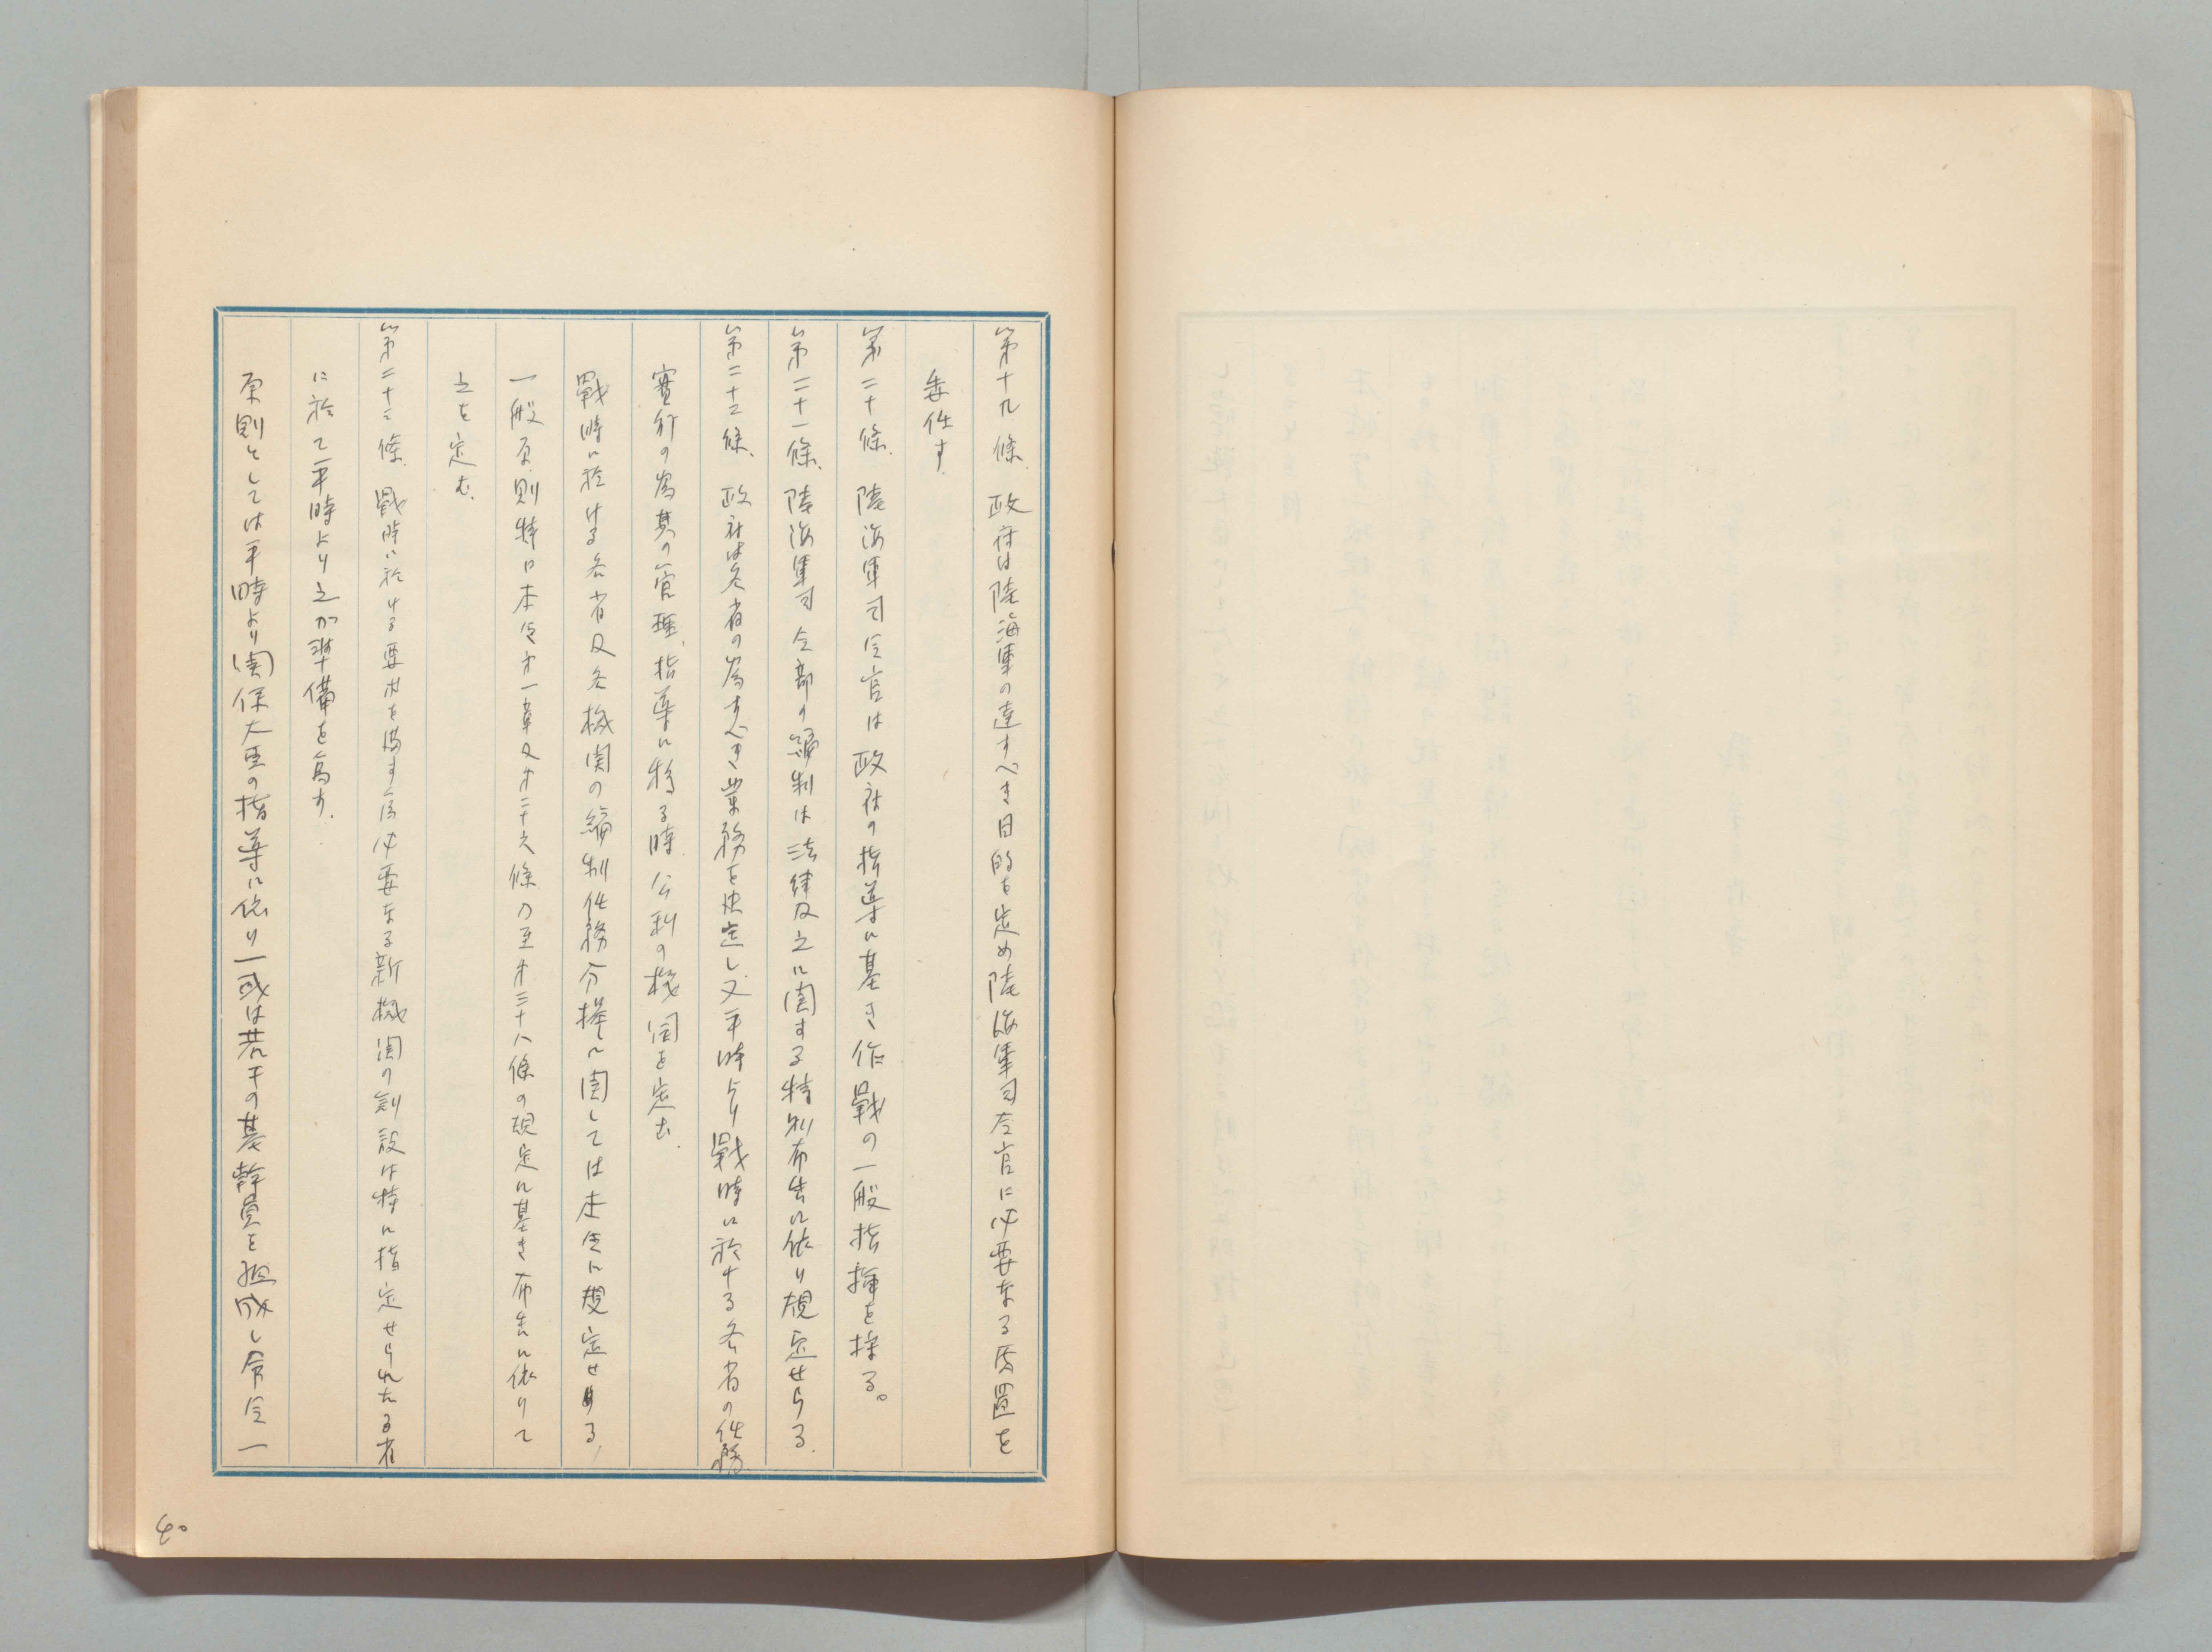 第十九條、政府は陸海軍の達すべき目的を定め陸海軍司令官に必要なる處置を
委任す、
第二十條、陸海軍司令官は政府の指導に基き作戰の一般指揮を採る。
第二十一條、陸海軍司令部の編制は法律及之に関する特別布告に依り規定せらる、
第二十二條、政府は各省の為すべき業務を決定し、又平時より戰時に於ける各省の任務
實行の為其の管理、指導に移る時公利の機関を定む、
戰時に於ける各省及各機関の編制任務分擔に関しては本令に規定せある、
一般原則特に本令才一章及才二十六條乃至才三十八條の規定に基き布告に依りて
之を定む、
第二十三條、戰時に於ける要求を満す為必要なる新機関の創設は特に指定せられたる省
に於て平時より之が準備を為す、
原則としては平時より関係大臣の指導に依り一或は若干の基幹員を組成し命令一
40